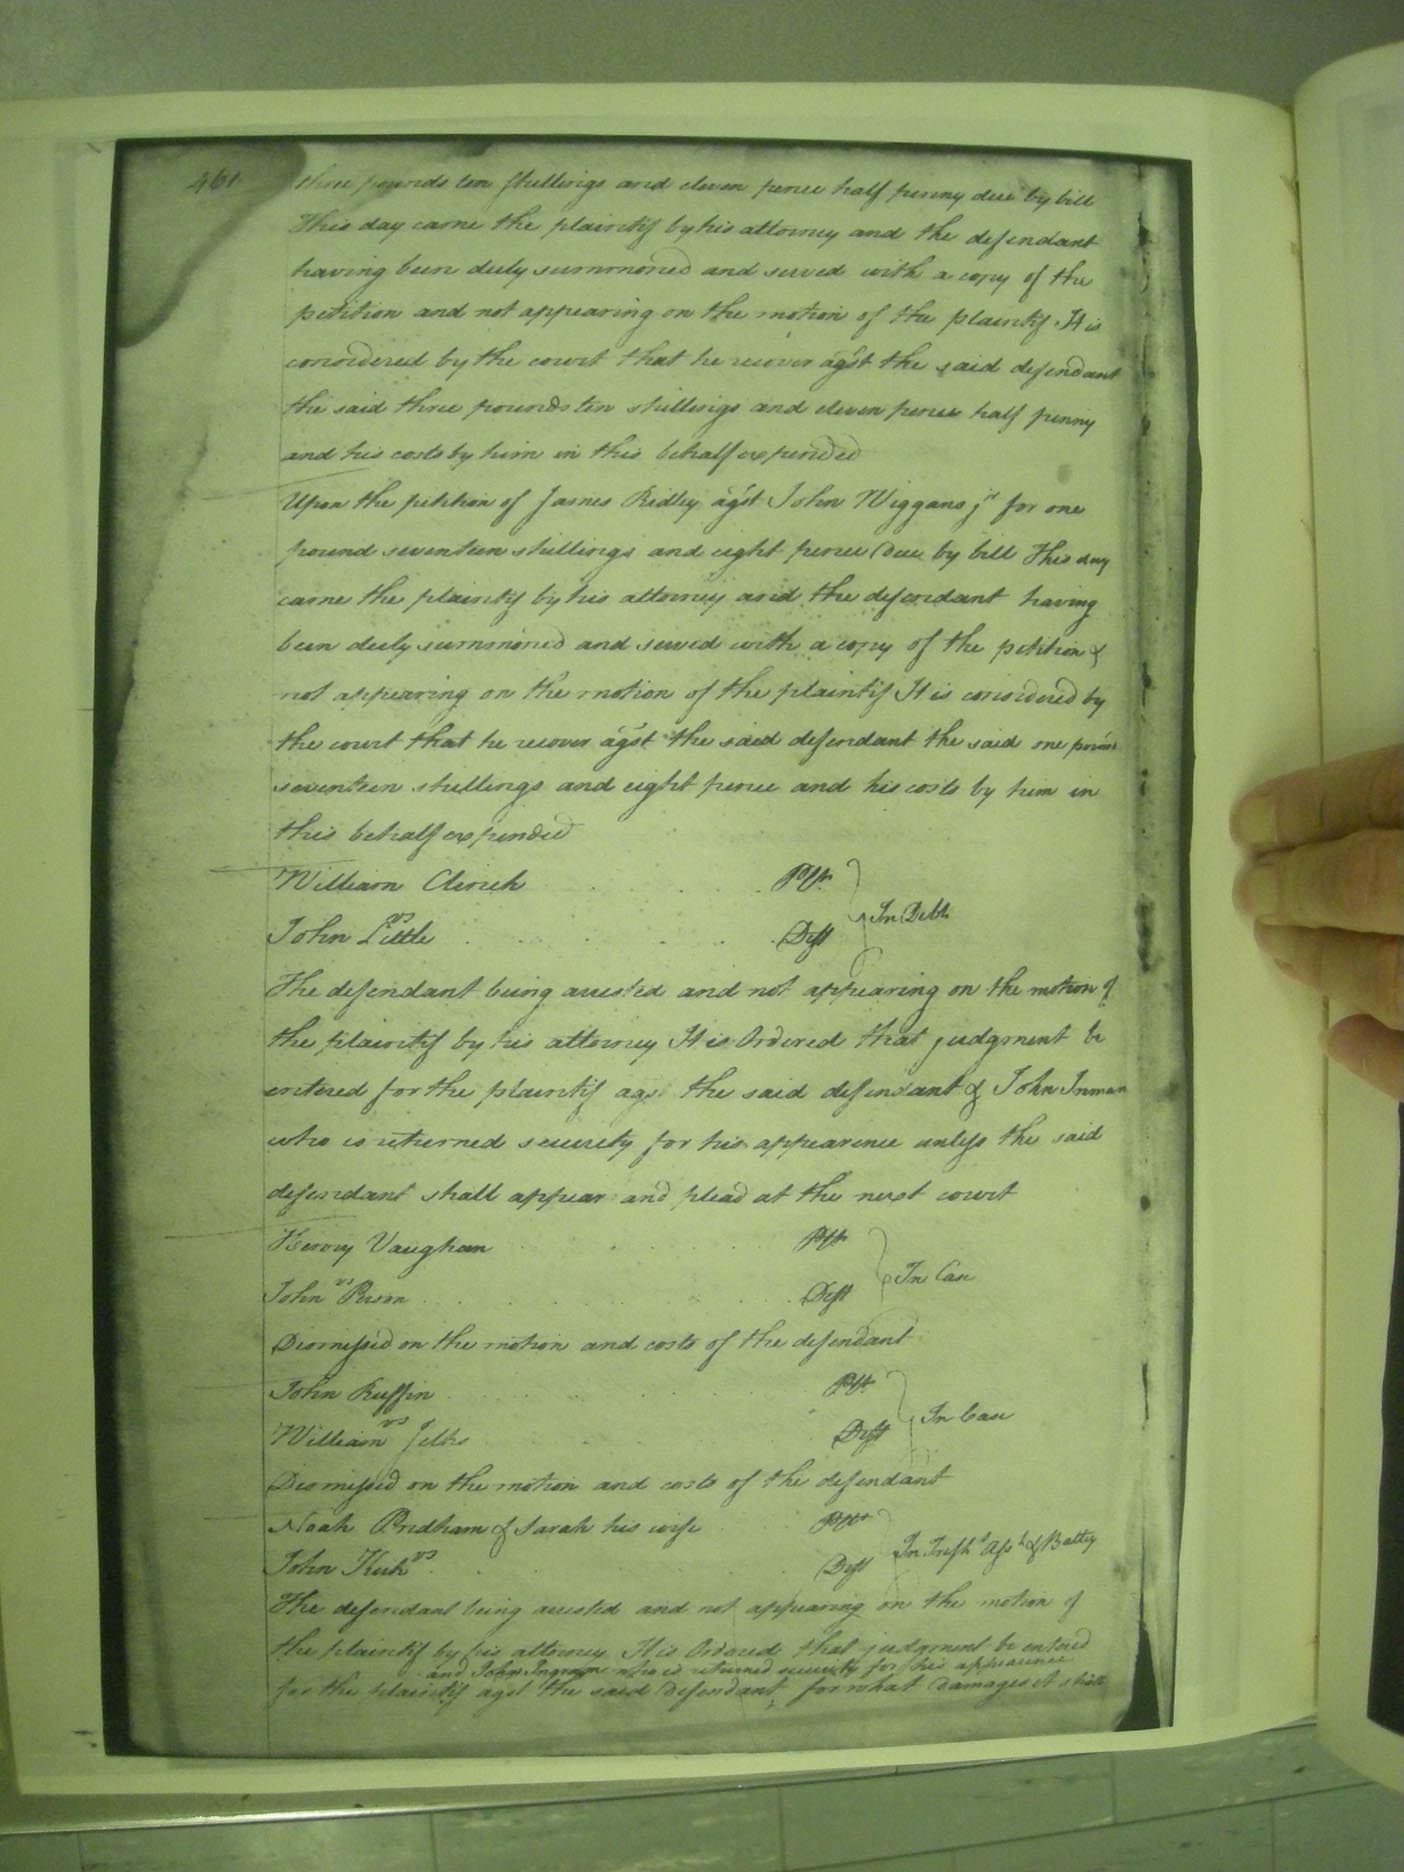 461
three pounds ten shillings and eleven pence half penny due by bill
This day came the plaintif by his attorney and the defendant
having been duly summoned and served with a copy of the
petition and not appearing on the motion of the plaintif It is
considered by the court that he recover agst the said defendant
the said three pounds ten shillings and eleven pence half penny
and his costs by him in this behalf expended
Upon the petition of James Ridley agst John Wiggans jr for one
pound seventeen shillings and eight pence Due by bill This day
came the plaintif by his attorney and the defendant having
been duly summoned and served with a copy of the petition &
not appearing on the motion of the plaintif It is considered by
the court that he recover agst the said defendant the said one pound
seventeen shillings and eight pence and his costs by him in
this behalf expended
William Clinch Plt
vs In Debt
John Little Deft
The defendant being arrested and not appearing on the motion of
the plaintif by his attorney It is Ordered that judgment be
entered for the plaintif ags the said defendant & John Inman
who is returned security for his appearence unless the said
defendant shall appear and plead at the next court
Henry Vaughan Plt
vs In Case
John Person Deft
Dismissed on the motion and costs of the defendant
John Ruffin Plt
vs In Case
William Jelks Deft
Dismissed on the motion and costs of the defendant
Noah Pridham & Sarah his wife Plts
vs In Tresps Asst & Battey
John Deft
The defendant being arrested and not appearing on the motion of
the plaintif by his attorney It is Ordered that judgment be entered
and John Ingram who is returned security for his appearence
for the plaintif agst the said Defendant for what Damages it shall